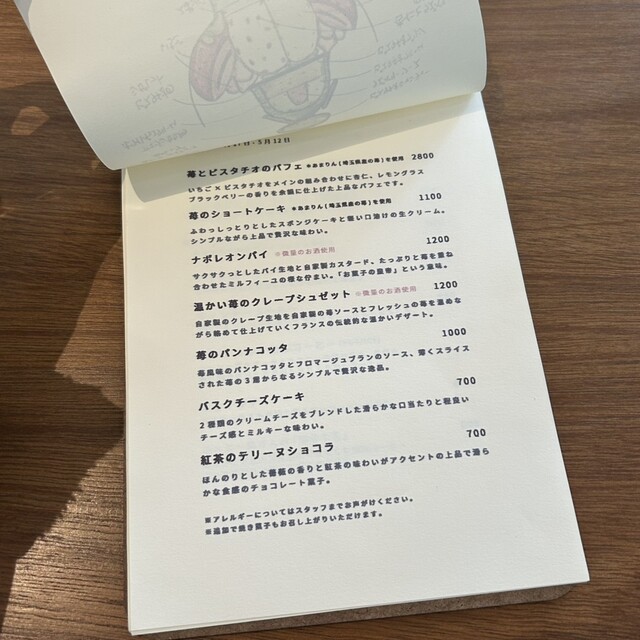 5月12日
苺とピスタチオのパフェ ※あまりん(埼玉県産の苺)を使用 2800
いちご×ピスタチオをメインの組み合わせに杏仁、レモングラス
ブラックベリーの香りを余韻に仕上げた上品なパフェです。
苺のショートケーキ ※あまりん(埼玉県産の苺)を使用 1100
ふわっしっとりとしたスポンジケーキと軽い口溶けの生クリーム。
シンプルながら上品で贅沢な味わい。
ナポレオンパイ ※微量のお酒使用 1200
サクサクっとしたパイ生地と自家製カスタード、たっぷりと苺を重ね
合わせたミルフィーユの様な佇まい。「お菓子の皇帝」という意味。
温かい苺のクレープシュゼット ※微量のお酒使用 1200
自家製のクレープ生地を自家製の苺ソースとフレッシュの苺を温めな
がら絡めて仕上げていくフランスの伝統的な温かいデザート。
苺のパンナコッタ 1000
苺風味のパンナコッタとフロマージュブランのソース、薄くスライス
された苺の3層からなるシンプルで贅沢な逸品。
バスクチーズケーキ 700
2種類のクリームチーズをブレンドした滑らかな口当たりと程良い
チーズ感とミルキーな味わい。
紅茶のテリーヌショコラ 700
ほんのりとした薔薇の香りと紅茶の味わいがアクセントの上品で滑ら
かな食感のチョコレート菓子。
※アレルギーについてはスタッフまでお声がけください。
※追加で焼き菓子もお召し上がりいただけます。